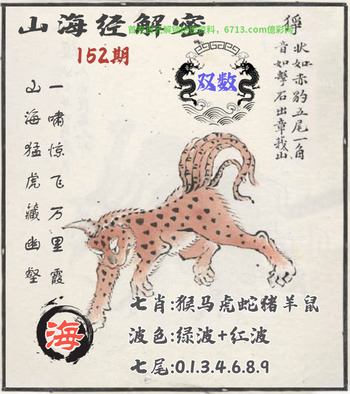 山海经解密
152期
双数
狰
状如赤豹五尾一角
音如擊石出章莪山
一啸惊飞万里霞
山海猛虎藏幽壑
海
七肖:猴马虎蛇猪羊鼠
波色:绿波+红波
七尾:0.1.3.4.6.8.9